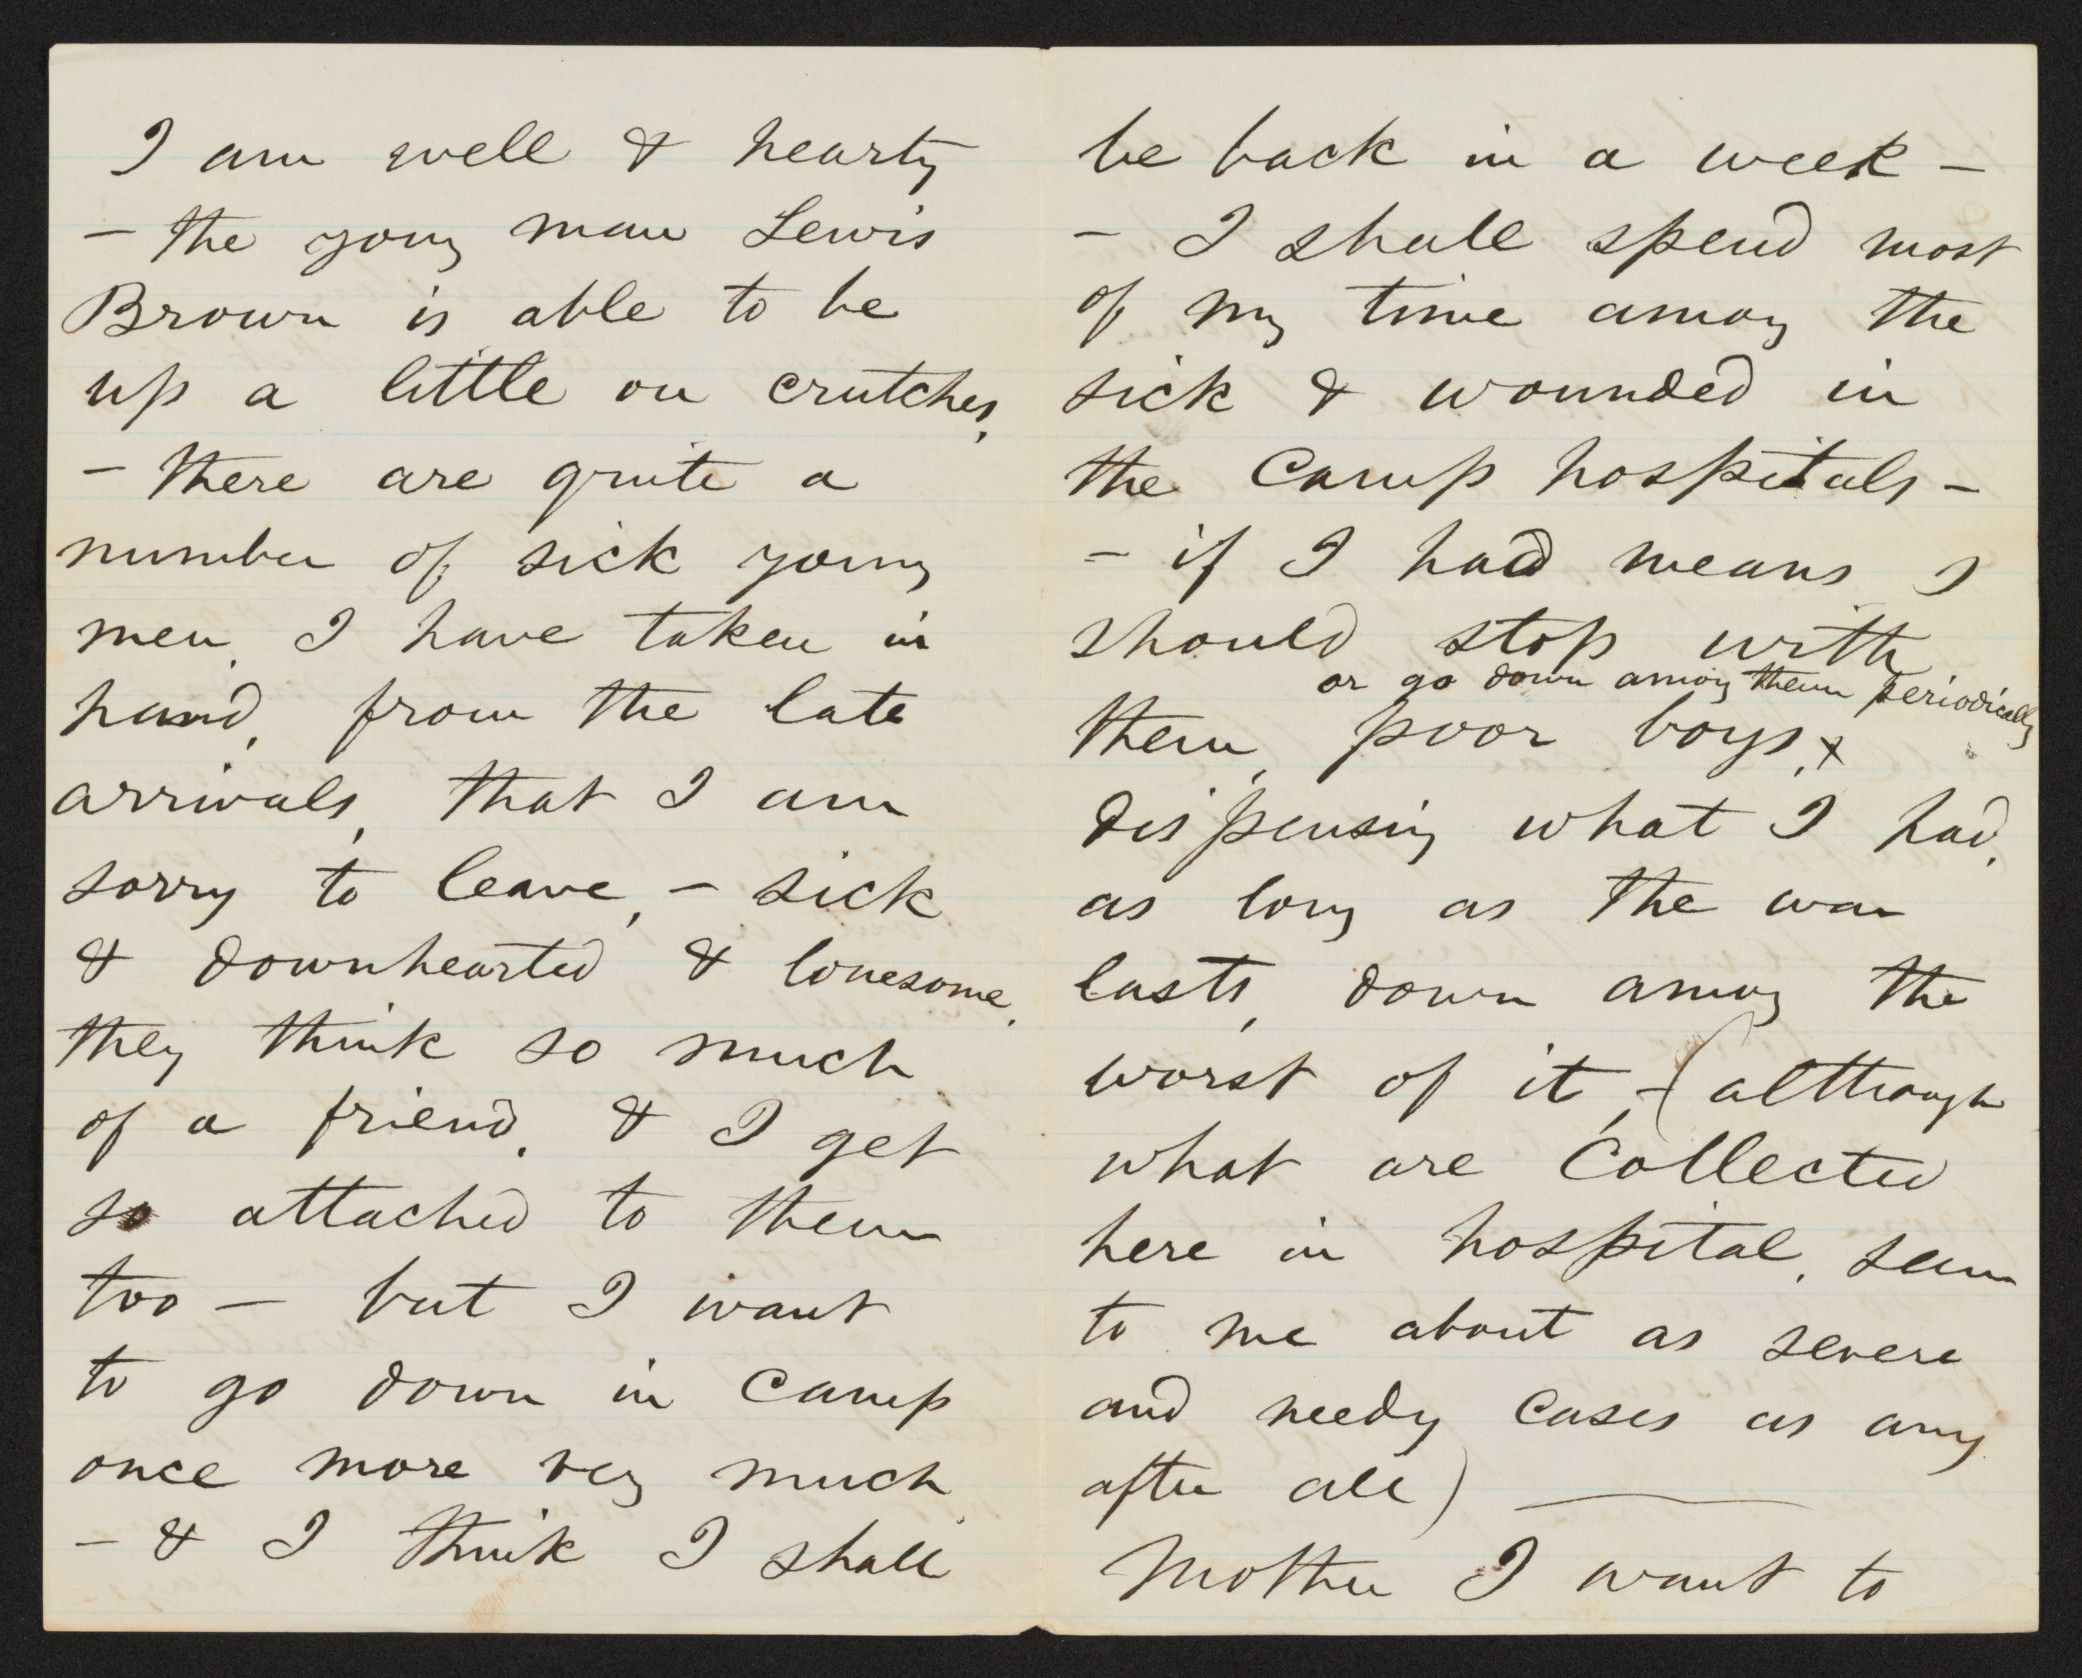 I am well & hearty
– the young man Lewis
Brown is able to be
up a little on crutches,
– there are quite a
number of sick young
men, I have taken in
hand, from the late
arrivals, that I am
sorry to leave, – sick
& downhearted & lonesome,
they think so much
of a friend, & I get
so attached to them
too – but I want
to go down in camp
once more very much
– & I think I shall
be back in a week –
– I shall spend most
of my time among the
sick & wounded in
the Camp hospitals –
– if I had means I
should stop with
or go down among them periodically
them, poor boys, x
dispensing what I had,
as long as the war
lasts, down among the
worst of it, – (although
what are Collected
here in hospital, seem
to me about as severe
and needy cases as any
after all) —
Mother I want to